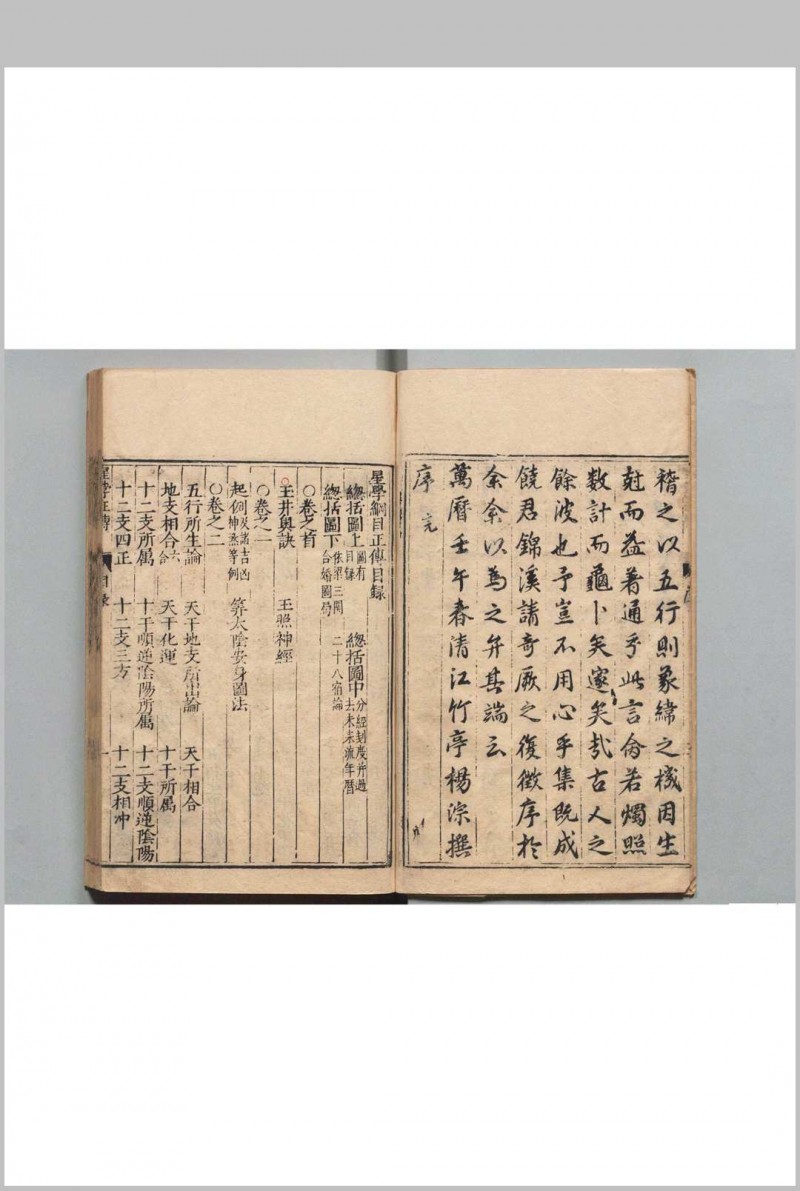 稽之以五行則象緯之機因生
尅而益著通乎此言命若燭照
数計而龜卜矣邃矣㢤古人之
餘波也予豈不用心乎集既成
饒君錦溪請奇厥之復徵序於
余余以為之弁其端云
萬曆壬午春清江竹亭楊淙撰
序完
星學綱目正傳目録
總括圖上 圖有目録 總括圖中 分經刻度并過去未来流年暦
總括圖下 依梁三閣合婚圖局 二十八宿論
○卷之首
玉井奥訣 玉照神經
○卷之一
起例 及諸吉凶神煞等例 筭太陰安身圖法
○卷之二
五行所生論 天干地支所出論 天干相合
地支相合 六合 天干化運 十干所属
十二支所属 十干順逆陰陽所属 十二支順逆陰陽
十二支四正 十二支三方 十二支相冲
星學正傳 目録 一